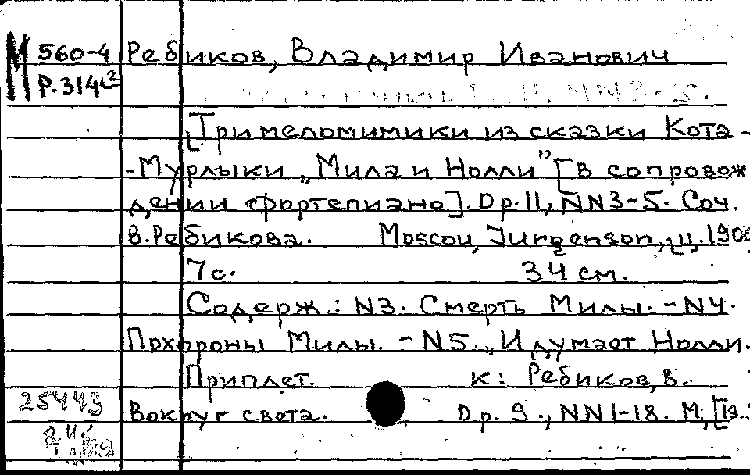 М 560-4 Ребиков, Владимир Иванович
Р.314c²
[Три меломимики из сказки Кота-
-Мурлыки „Мила и Нолли" [в сопровож
дении фортепиано]. Op.11, NN3-5. Соч.
В.Ребикова. Moscou, Jurgenson, ц. 190
7с. 34 см.
Содерж.: N3. Смерть Милы. - N4.
Похороны Милы. - N5. „И думает Нолли.
Приплет. к: Ребиков, В.
25443
Вокруг света. Op. 9., NN1-18. М, [19